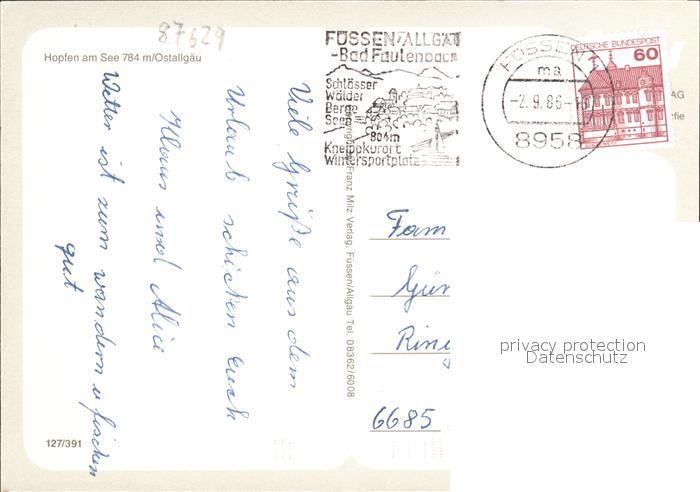 87629
Hopfen am See 784 m/Ostallgäu
Viele Grüße aus dem
Urlaub schicken euch
Klaus und Alice
Wetter ist zum wandern u fischen
gut
127/391
Franz Milz Verlag, Füssen/Allgäu Tel. 08362/6008
FÜSSEN/ALLGÄU
-Bad Faulenbach
Schlösser
Wälder
Berge
Seen
804m
Kneippkurort
Wintersportplatz
FÜSSEN
ma
-2.9.86-
8958
DEUTSCHE BUNDESPOST
60
AG
fie
Fam
Gün
Rin
6685
privacy protection
Datenschutz